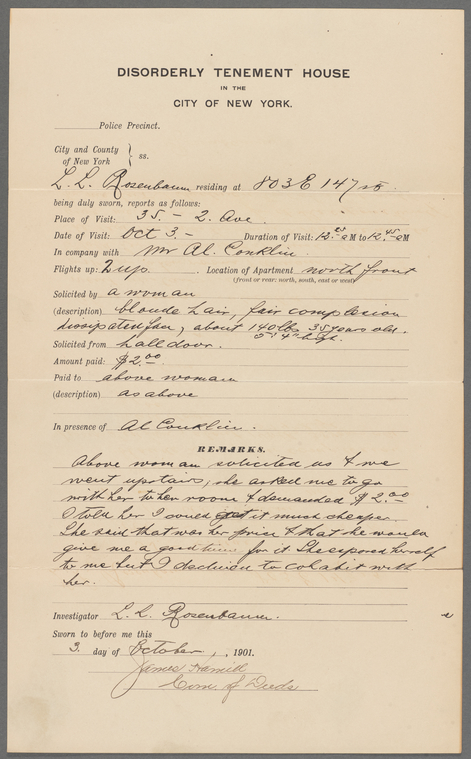 DISORDERLY TENEMENT HOUSE
IN THE
CITY OF NEW YORK.
Police Precinct.
City and County
of New York } ss.
L. L. Rosenbaum residing at 803 E 147 st.
being duly sworn, reports as follows:
Place of Visit: 35. - 2. Ave
Date of Visit: Oct 3. - Duration of Visit: 12. M to 12.45 M
In company with Mr Al. Conklin
Flights up: 2 up. Location of Apartment north front
(front or rear: north, south, east or west)
Solicited by a woman
(description) blonde hair, fair complexion
dissipated face, about 140 lbs. 35 years old.
5' 4" high.
Solicited from hall door.
Amount paid: $2.00
Paid to above woman
(description) as above
In presence of Al Conklin.
REMARKS.
Above woman solicited us & we
went upstairs, she asked me to go
with her to her room & demanded $2.00
I told her I could get it much cheaper
She said that was her price & that she would
give me a good time for it She exposed herself
to me but I declined to cohabit with
her.
Investigator L. L. Rosenbaum.
Sworn to before me this
3. day of October, , 1901.
James Hamill
Com. of Deeds